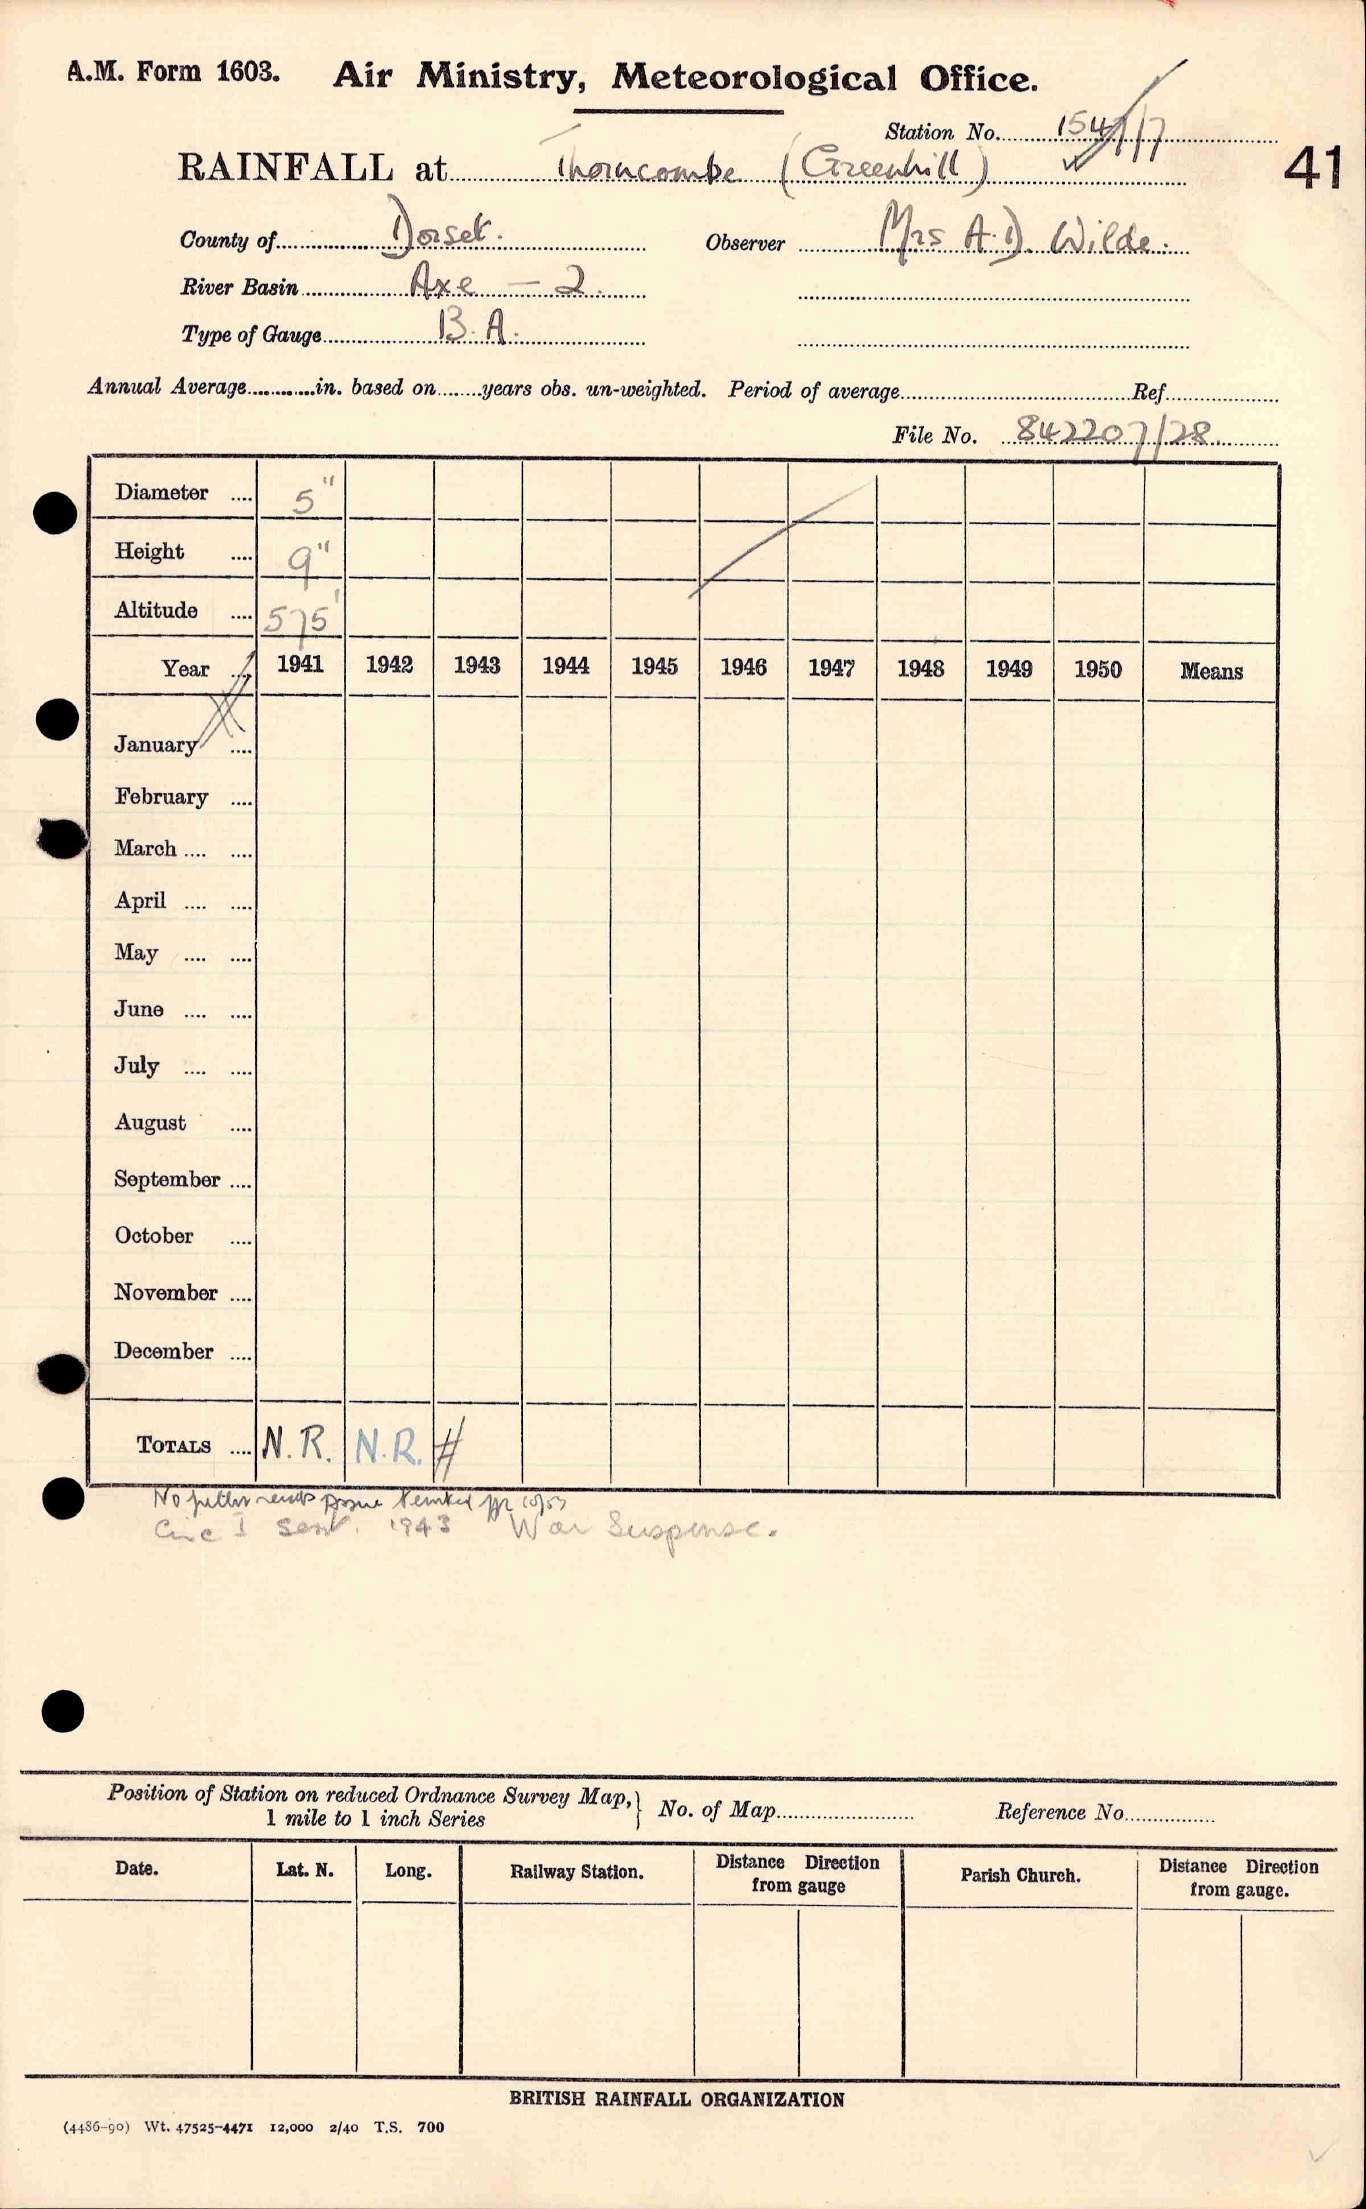 A.M. Form 1603. Air Ministry, Meteorological Office.
Station No. 1547/7
RAINFALL at Thorncombe (Greenhill)
41
County of Dorset. Observer Mrs A.D. Wilde.
River Basin Axe — 2.
Type of Gauge B.A.
Annual Average in. based on years obs. un-weighted. Period of average Ref
File No. 842207/28
Diameter .... 5"
Height .... 9"
Altitude .... 575'
Year ... 1941 1942 1943 1944 1945 1946 1947 1948 1949 1950 Means
January ....
February ....
March .... ....
April .... ....
May .... ....
June .... ....
July .... ....
August ....
September ....
October ....
November ....
December ....
TOTALS .... N.R. N.R. #
No
Circ I sent. 1943 War Suspense.
Position of Station on reduced Ordnance Survey Map, } No. of Map Reference No.
1 mile to 1 inch Series
Date. Lat. N. Long. Railway Station. Distance Direction from gauge Parish Church. Distance Direction from gauge.
BRITISH RAINFALL ORGANIZATION
(4486-90) Wt. 47525-4471 12,000 2/40 T.S. 700